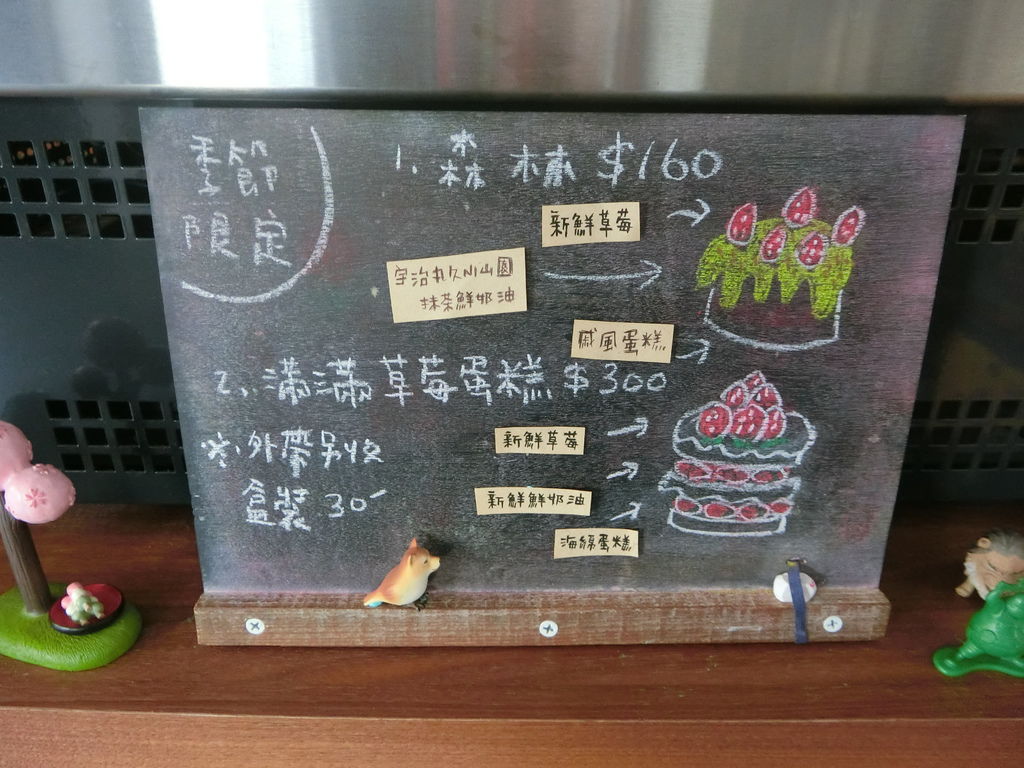 季節
限定
1. 森林 $160
新鮮草莓
宇治丸久小山園
抹茶鮮奶油
戚風蛋糕
2. 滿滿草莓蛋糕 $300
新鮮草莓
新鮮鮮奶油
海綿蛋糕
※外帶另收
盒裝 30